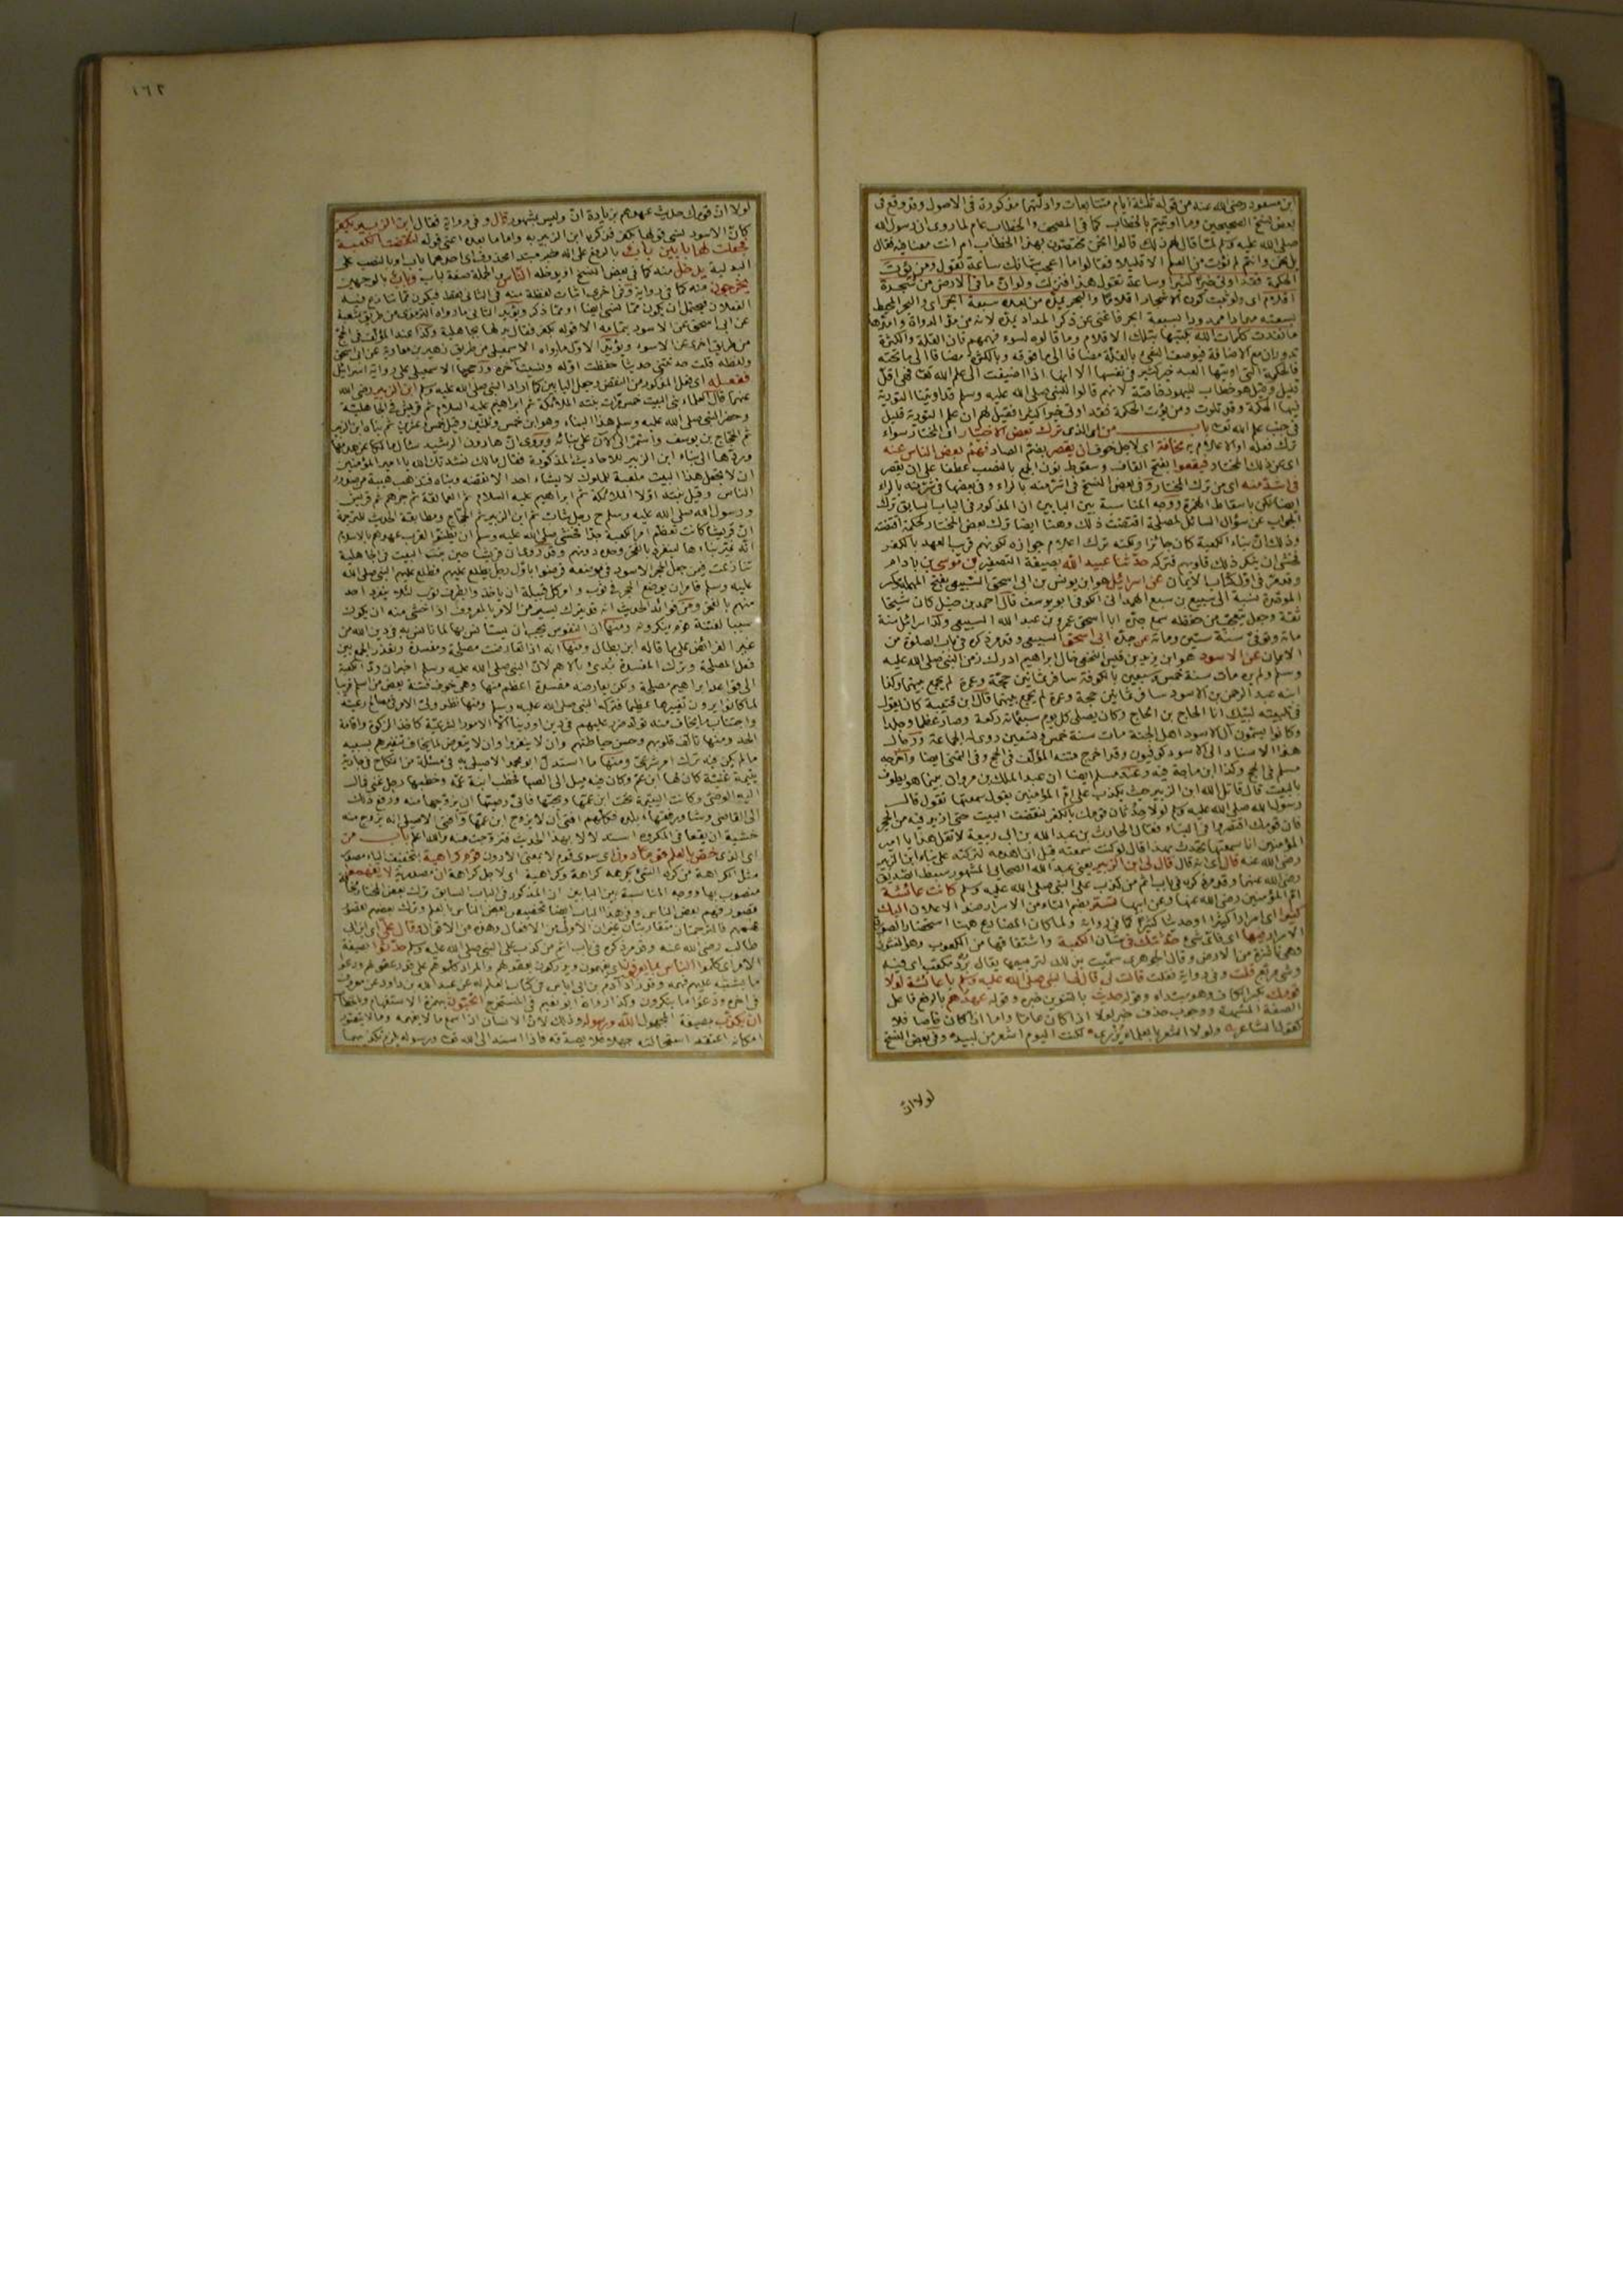 ابن مسعود رضي الله عنه من قوله ثلثة ايام متتابعات وادلتهما مذكورة في الاصول وقد وقع في
بعض نسخ الصحيحين وما اوتيتم بالخطاب كما في المصحف والخطاب عام لما روى ان رسول الله
صلى الله عليه وسلم لما قال لهم ذلك قالوا نحن مختصون بهذا الخطاب ام انت معنا فيه فقال
بل نحن وانتم لم نؤت من العلم الا قليلا فقالوا ما اعجب شانك ساعة تقول ومن يؤت
الحكمة فقد اوتي خيرا كثيرا وساعة تقول هذا فنزلت ولو ان ما في الارض من شجرة
اقلام اى ولو ثبت كون الاشجار اقلاما والبحر يمده من بعده سبعة ابحر اى والبحر المحيط
بسعته مدادا ممدودا بسبعة ابحر فاغنى عن ذكر المداد يمده لانه من مد الدواة وامدها
ما نفدت كلمات الله بكتبها بتلك الاقلام وما قالوه لسوء فهمهم فان القلة والكثرة
تدوران مع الاضافة فيوصف الشئ بالقلة مضافا الى ما فوقه وبالكثرة مضافا الى ما تحته
فالحكمة التي اوتيها العبد خير كثير في نفسها الا انها اذا اضيفت الى علم الله تعالى فهى اقل
قليل وقيل هو خطاب لليهود خاصة لانهم قالوا للنبي صلى الله عليه وسلم قد اوتينا التورية
فيها الحكمة وقد تلوت ومن يؤت الحكمة فقد اوتي خيرا كثيرا فقيل لهم ان علم التورية قليل
في جنب علم الله تعالى باب من اى الذى ترك بعض الاختيار اى المختار سواء
ترك فعله او الاعلام به مخافة اى لاجل خوف ان يقصر بضم الصاد فهم بعض الناس عنه
اى عن ذلك المختار فيقعوا بفتح القاف وسقوط نون الجمع بالنصب عطفا على ان يقصر
في اشد منه اى من ترك المختار وفي بعض النسخ في اشر منه بالراء وفي بعضها في شر منه بالراء
ايضا لكن باسقاط الهمزة ووجه المناسبة بين البابين ان المذكور في الباب السابق ترك
الجواب عن سؤال السائل لمصلحة اقتضت ذلك وهنا ايضا ترك بعض المختار لحكمة اقتضته
وذلك ان بناء الكعبة كان جائزا ولكنه ترك اعلام جوازه لكونهم قريب العهد بالكفر
فخشى ان ينكر ذلك قلوبهم فتركه حدثنا عبيد الله بصيغة التصغير بن موسى بن باذام
وقد مر في اول كتاب الايمان عن اسرائيل هو ابن يونس بن ابى اسحق السبيعي بفتح المهملة وكسر
الموحدة نسبة الى سبيع بن سبع الهمدانى الكوفى ابو يوسف قال احمد بن حنبل كان شيخا
ثقة وجعل يتعجب من حفظه سمع جده ابا اسحق عمرو بن عبد الله السبيعي ولد اسرائيل سنة
مائة وتوفى سنة ستين ومائة عن جده ابى اسحق السبيعي وقد مر ذكره في باب الصلوة من
الايمان عن الاسود هو ابن يزيد بن قيس النخعي خال ابراهيم ادرك زمن النبي صلى الله عليه
وسلم ولم يره مات سنة خمس وسبعين بالكوفة سافر ثمانين حجة وعمرة لم يجمع بينهما وكذا
ابنه عبد الرحمن بن الاسود سافر ثمانين حجة وعمرة لم يجمع بينهما قال ابن قتيبة كان يقول
في تلبيته لبيك انا الحاج بن الحاج وكان يصلى كل يوم سبعمائة ركعة وصار عظما وجلدا
وكانوا يسمون آل الاسود اهل الجنة مات سنة خمس وتسعين روى له الجماعة ورجال
هذا الاسناد الى الاسود كوفيون وقد اخرج متنه المؤلف في الحج وفي التمنى ايضا واخرجه
مسلم في الحج وكذا ابن ماجة فيه وعند مسلم ايضا ان عبد الملك بن مروان بينما هو يطوف
بالبيت قال قاتل الله ابن الزبير حيث يكذب على ام المؤمنين يقول سمعتها تقول قال
رسول الله صلى الله عليه وسلم لولا حدثان قومك بالكفر لنقضت البيت حتى ازيد فيه من الحجر
فان قومك اقتصروا في البناء فقال الحارث بن عبد الله بن ابى ربيعة لا تقل هذا يا امير
المؤمنين انا سمعتها تحدث بهذا قال لو كنت سمعته قبل ان اهدمه لتركته على بناء ابن الزبير
رضي الله عنه قال اى انه قال قال لي ابن الزبير يعني عبد الله الصحابي المشهور سبط الصديق
رضي الله عنهما وقد مر ذكره في باب اثم من كذب على النبي صلى الله عليه وسلم كانت عائشة
ام المؤمنين رضي الله عنها وعن ابيها تسر بضم التاء من الاسرار ضد الاعلان اليك
كثيرا اى اسرارا كثيرا او حديثا كثيرا كما في رواية ولما كان المضارع هنا استحضار الصورة
الاسرار فما اى فاى شئ حدثتك في شان الكعبة واشتقاقها من الكعوب وهو النشوز
وهى ناشزة من الارض وقال الجوهرى سميت بذلك لتربيعها يقال برد مكعب اى فيه
وشى مربع قلت وفي رواية فقلت قالت لي قال النبي صلى الله عليه وسلم يا عائشة لولا
قومك بكسر الكاف وهو مبتداء وقوله حديث بالتنوين خبره وقوله عهدهم بالرفع فاعل
الصفة المشبهة ووجوب حذف خبر لولا اذا كان عاما واما اذا كان خاصا فلا
كقول الشاعر ولولا الشعر بالعلماء يزرى لكنت اليوم اشعر من لبيد وفي بعض النسخ
لولا ان
١٦٢
لولا ان قومك حديث عهدهم بزيادة ان وليس بمشهور قال وفي رواية فقال ابن الزبير بكفر
كان الاسود نسى قولها بكفر فذكره ابن الزبير به واما ما بعده اعنى قوله لنقضت الكعبة
فجعلت لها بابين باب بالرفع على انه خبر مبتدا محذوف اى احدهما باب او بالنصب على
البدلية يدخل منه كما في بعض النسخ او يدخله الناس والجملة صفة باب وباب بالوجهين
يخرجون منه كما في رواية وفي اخرى اثبات لفظة منه في الثانى فقط فيكون مما تنازع فيه
الفعلان فيحتمل ان يكون مما نسى ايضا او مما ذكر ويؤيد الثانى ما رواه الترمذى من طريق شعبة
عن ابى اسحق عن الاسود بتمامه الا قوله بكفر فقال بدلها بجاهلية وكذا عند المؤلف في الحج
من طريق اخرى عن الاسود ويؤيد الاول ما رواه الاسمعيلى من طريق زهير بن معاوية عن ابى اسحق
ولفظه قلت حدثتنى حديثا حفظت اوله ونسيت آخره ورجحها الاسمعيلى على رواية اسرائيل
ففعله اى فعل المذكور من النقض وجعل البابين كما اراد النبي صلى الله عليه وسلم ابن الزبير رضي الله
عنهما قال العلماء بنى البيت خمس مرات بنته الملائكة ثم ابراهيم عليه السلام ثم قريش في الجاهلية
وحضر النبي صلى الله عليه وسلم هذا البناء وهو ابن خمس وثلثين وقيل خمس وعشرين ثم بناه ابن الزبير
ثم الحجاج بن يوسف واستمر الى الآن على بنائه ويروى ان هارون الرشيد سال مالكا عن هدمها
وردها الى بناء ابن الزبير للاحاديث المذكورة فقال مالك نشدتك الله يا امير المؤمنين
ان لا تجعل هذا البيت ملعبة للملوك لا يشاء احد الا نقضه وبناه فتذهب هيبته من صدور
الناس وقيل بنته اولا الملائكة ثم ابراهيم عليه السلام ثم العمالقة ثم جرهم ثم قريش
ورسول الله صلى الله عليه وسلم ح رجل شاب ثم ابن الزبير ثم الحجاج ومطابقة الحديث للترجمة
ان قريشا كانت تعظم امر الكعبة جدا فخشى صلى الله عليه وسلم ان يظنوا لقرب عهدهم بالاسلام
انه غير بناءها لينفرد بالفخر وحده دونهم وقد روى ان قريشا حين بنت البيت في الجاهلية
تنازعت فيمن يجعل الحجر الاسود في موضعه فرضوا باول رجل يطلع عليهم فطلع عليهم النبي صلى الله
عليه وسلم فامر ان يوضع الحجر في ثوب وامر كل قبيلة ان ياخذ بطرف الثوب لئلا ينفرد احد
منهم بالفخر ومن فوائد الحديث انه قد يترك يسير من الامر بالمعروف اذا خشى منه ان يكون
سببا لفتنة قوم ينكرونه ومنها ان النفوس يجب ان تستانس بها لما تانس به في دين الله من
غير الفرائض على ما قاله ابن بطال ومنها انه اذا تعارضت مصلحة ومفسدة وتعذر الجمع بين
فعل المصلحة وترك المفسدة بدئ بالاهم لان النبي صلى الله عليه وسلم اخبر ان رد الكعبة
الى قواعد ابراهيم مصلحة ولكن يعارضه مفسدة اعظم منها وهى خوف فتنة بعض من اسلم قريبا
لما كانوا يرون تغييرها عظيما فتركه النبي صلى الله عليه وسلم ومنها نظر ولي الامر في مصالح رعيته
واجتناب ما يخاف منه تولد ضرر عليهم في دين او دنيا الا الامور الشرعية كاخذ الزكوة واقامة
الحد ومنها تالف قلوبهم وحسن حياطتهم وان لا ينفروا وان لا يتعرض لما يخاف تنفيرهم بسببه
ما لم يكن فيه ترك امر شرعى ومنها ما استدل ابو محمد الاصيلى به في مسئلة من النكاح في جارية
يتيمة غنية كان لها ابن عم وكان فيه ميل الى الصبا فخطب ابنة عمه وخطبها رجل غنى فمال
اليه الوصى وكانت اليتيمة تحب ابن عمها ويحبها فابى وصيها ان يزوجها منه ورفع ذلك
الى القاضى وشاور فقهاء بلده فكلهم افتى ان لا يزوج ابن عمها وافتى الاصيلى انه يزوج منه
خشية ان يقعا في المكروه استدلالا بهذا الحديث فتزوجت منه والله اعلم باب من
اى الذى خص بالعلم قوما دون اى سوى قوم لا بمعنى الادون قوم كراهية بتخفيف الياء مصدر
مثل الكراهة من كره الشئ يكرهه كراهة وكراهية اى لاجل كراهة ان مصدرية لا يفهموا
منصوب بها ووجه المناسبة بين البابين ان المذكور في الباب السابق ترك بعض المختار مخافة
قصور فهم بعض الناس وفي هذا الباب ايضا تخصيص بعض الناس بالعلم وترك بعضهم لقصور
فهمهم فالترجمتان متقاربتان غير ان الاولى من الافعال وهذه من الاقوال وقال على اى ابن ابى
طالب رضي الله عنه وقد مر ذكره في باب اثم من كذب على النبي صلى الله عليه وسلم حدثوا بصيغة
الامر اى كلموا الناس بما يعرفون اى يفهمون ويدركون بعقولهم والمراد كلموهم على قدر عقولهم ودعوا
ما يشتبه عليهم فهمه وقد زاد آدم بن ابى اياس في كتاب العلم له عن عبد الله بن داود عن معروف
في اخره ودعوا ما ينكرون وكذا رواه ابو نعيم في المستخرج اتحبون بهمزة الاستفهام والخطاب
ان يكذب بصيغة المجهول الله ورسوله وذلك لان الانسان اذا سمع ما لا يفهمه وما لا يتصور
امكانه اعتقد استحالته جهلا فلا يصدقه فاذا اسند الى الله تعالى ورسوله يلزم تكذيبهما